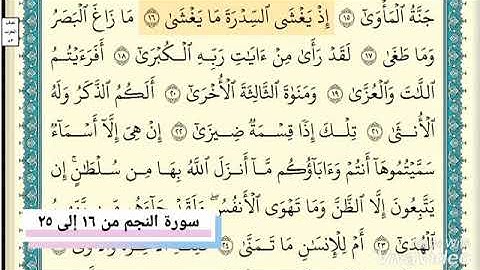 جَنَّةُ الْمَأْوَىٰ ١٥ إِذْ يَغْشَى السِّدْرَةَ مَا يَغْشَىٰ ١٦ مَا زَاغَ الْبَصَرُ
وَمَا طَغَىٰ ١٧ لَقَدْ رَأَىٰ مِنْ ءَايَٰتِ رَبِّهِ الْكُبْرَىٰ ١٨ أَفَرَءَيْتُمُ
اللَّٰتَ وَالْعُزَّىٰ ١٩ وَمَنَوٰةَ الثَّالِثَةَ الْأُخْرَىٰ ٢٠ أَلَكُمُ الذَّكَرُ وَلَهُ
الْأُنثَىٰ ٢١ تِلْكَ إِذًا قِسْمَةٌ ضِيزَىٰ ٢٢ إِنْ هِيَ إِلَّا أَسْمَاءٌ
سَمَّيْتُمُوهَا أَنتُمْ وَءَابَاؤُكُم مَّا أَنزَلَ اللَّهُ بِهَا مِن سُلْطَٰنٍ إِن
يَتَّبِعُونَ إِلَّا الظَّنَّ وَمَا تَهْوَى الْأَنفُسُ وَلَقَدْ جَاءَهُم مِّن رَّبِّهِمُ
سورة النجم من ١٦ إلى ٢٥
الْهُدَىٰ ٢٣ أَمْ لِلْإِنسَٰنِ مَا تَمَنَّىٰ ٢٤